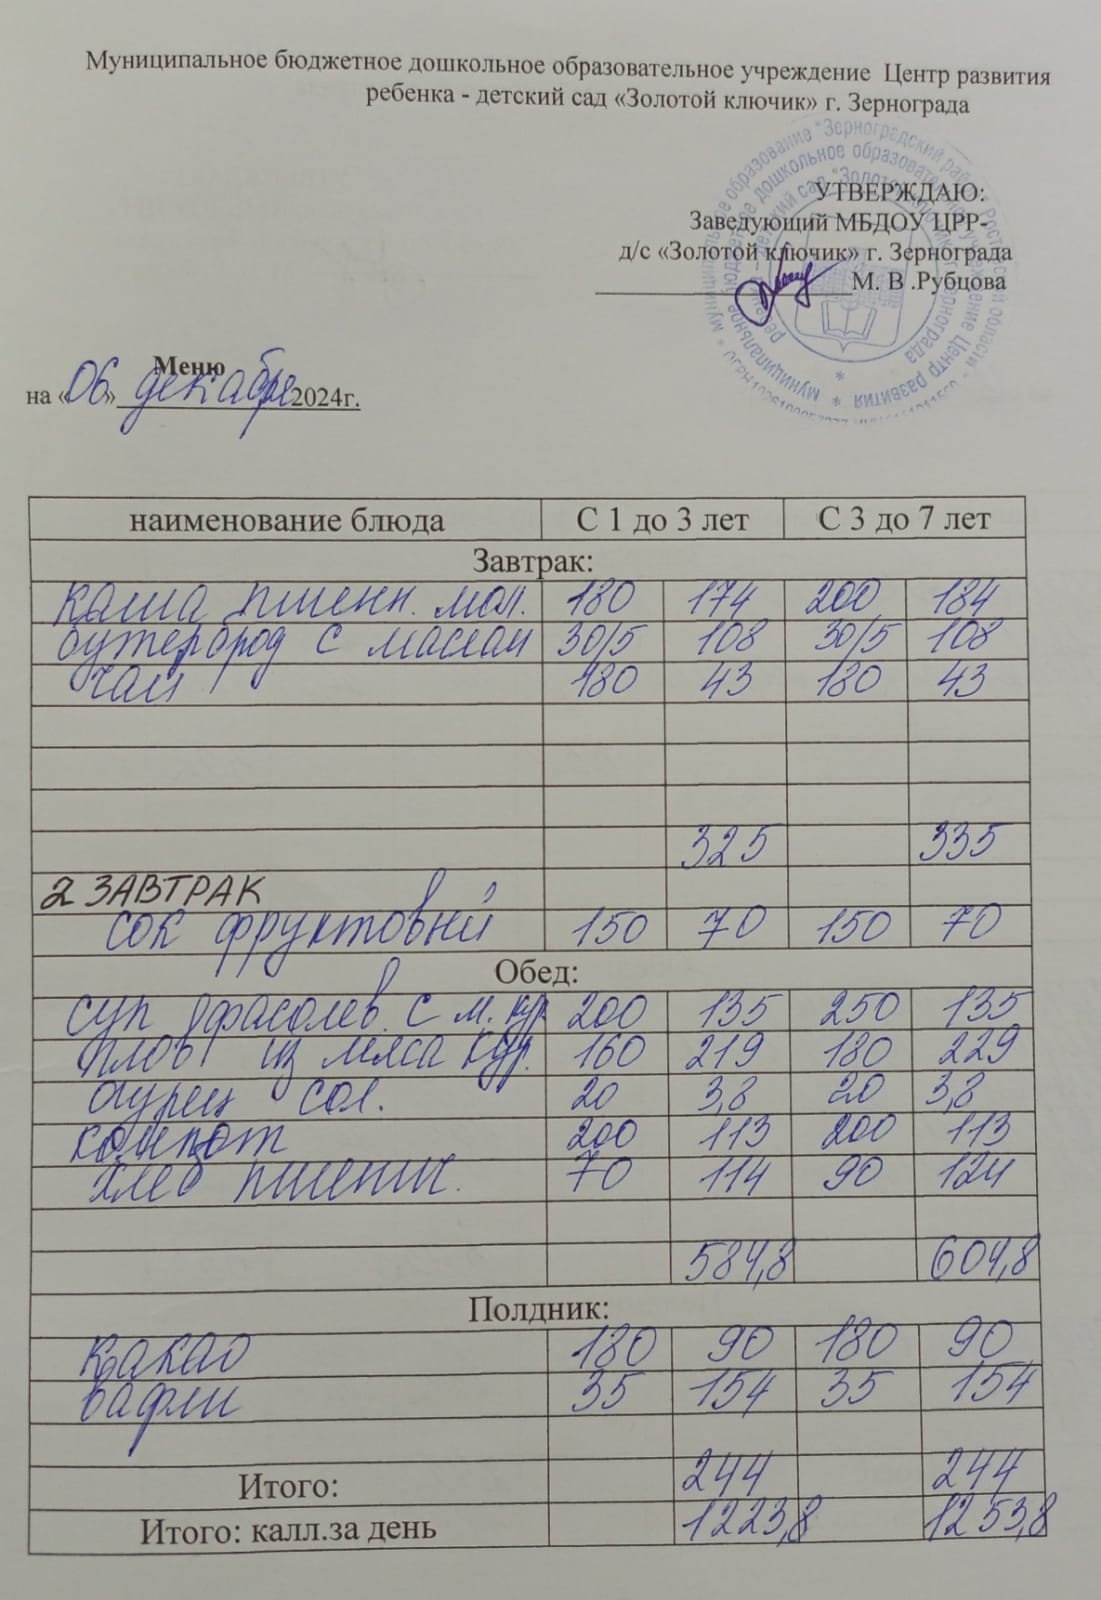 Муниципальное бюджетное дошкольное образовательное учреждение Центр развития
ребенка - детский сад «Золотой ключик» г. Зернограда
УТВЕРЖДАЮ:
Заведующий МБДОУ ЦРР-
д/с «Золотой ключик» г. Зернограда
М. В .Рубцова
Меню
на «06» декабря 2024г.
наименование блюда С 1 до 3 лет С 3 до 7 лет
Завтрак:
каша пшенн. мол. 180 174 200 184
бутерброд с маслом 30/5 108 30/5 108
чай 180 43 180 43
325 335
2 ЗАВТРАК
сок фруктовый 150 70 150 70
Обед:
суп фасолев. с м. кур 200 135 250 135
плов из мяса кур. 160 219 180 229
огурец сол. 20 3,8 20 3,8
компот 200 113 200 113
хлеб пшенич. 70 114 90 124
584,8 604,8
Полдник:
какао 180 90 180 90
вафли 35 154 35 154
Итого: 244 244
Итого: калл.за день 1223,8 1253,8